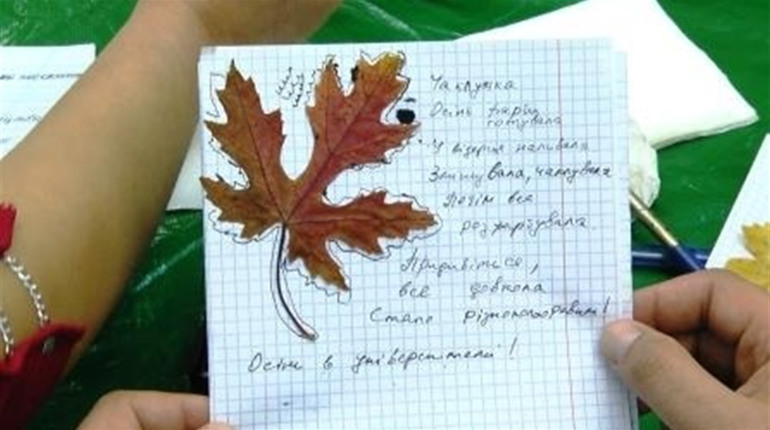 Чаклунка
Осінь фарби
готувала
У відерця наливала
Змішувала, чаклувала
Потім все
розфарбувала.
Придивіться,
все довкола
Стало різнокольоровим!
Осінь в університеті!